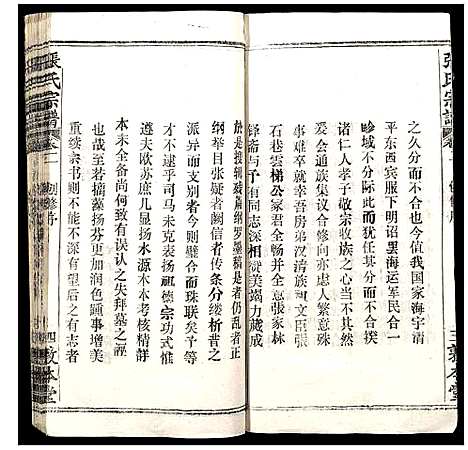 張氏宗譜
卷一
創修序
三敦本堂
之久分而不合也今值我国家海宇清
平东西宾服下明诏罢海运军民合一
畛域不分际此而犹任其分而不合揆
诸仁人孝子敬宗收族之心当不其然
爰会通族集议合修向亦虑人繁意殊
事难卒就幸吾房弟汉清族可文臣张
石巷云梯公家君全畅宇忠张家林
铎斋与予有同志深相赞美竭力蒇成
于是搜辑残篇网罗墨稿是者仍乱者正
纲举目张疑者阙信者传条分缕析昔之
派异而支别者今则璧合而珠联矣予
才不逮乎司马未克表扬祖德宗功式惟
遵夫欧苏庶几显扬水源木本考核精详
本末全备尚何致有误认之失拜墓之诬
也哉至若摛藻扬芬更加润色踵事增美
重续宗书则不能不深有望后之有志者
張氏宗譜
卷一
創修序
四敦本堂